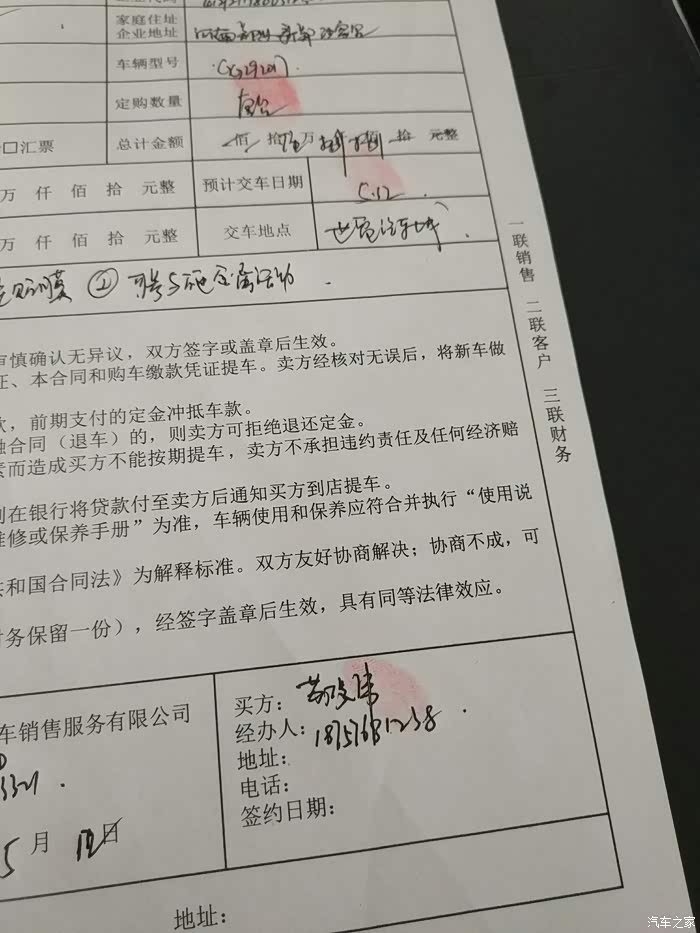 家庭住址
企业地址
车辆型号
定购数量
壹台
口汇票
总计金额
佰 拾 万 仟 佰 拾 元整
万 仟 佰 拾 元整
预计交车日期
5.12
万 仟 佰 拾 元整
交车地点
世贸汽车城
②
审慎确认无异议，双方签字或盖章后生效。
证、本合同和购车缴款凭证提车。卖方经核对无误后，将新车做
款，前期支付的定金冲抵车款。
融合同（退车）的，则卖方可拒绝退还定金。
素而造成买方不能按期提车，卖方不承担违约责任及任何经济赔
到在银行将贷款付至卖方后通知买方到店提车。
维修或保养手册”为准，车辆使用和保养应符合并执行“使用说
共和国合同法》为解释标准。双方友好协商解决；协商不成，可
财务保留一份），经签字盖章后生效，具有同等法律效应。
一联销售 二联客户 三联财务
车销售服务有限公司
5月 12日
买方：
经办人：
地址：
电话：
签约日期：
地址：
汽车之家